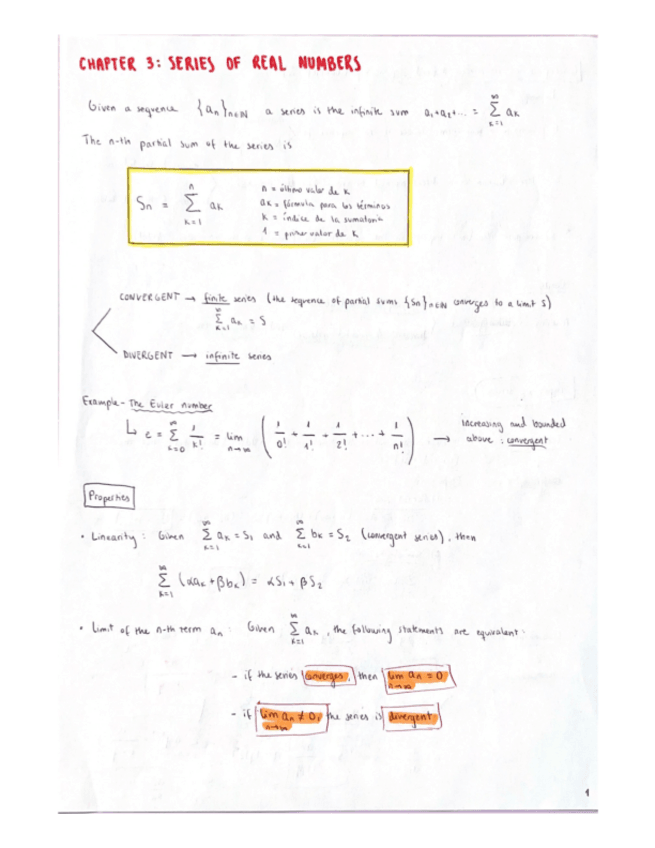 CHAPTER 3: SERIES OF REAL NUMBERS
Given a sequence {an}n∈ℕ a series is the infinite sum a1+a2+... = ∞∑k=1 ak
The n-th partial sum of the series is
Sn = n∑k=1 ak
n = último valor de k
ak = fórmula para los términos
k = índice de la sumatoria
1 = primer valor de k
CONVERGENT → finite series (the sequence of partial sums {Sn}n∈ℕ converges to a limit S)
∞∑k=1 ak = S
DIVERGENT → infinite series
Example - The Euler number
↳ e = ∞∑k=0 1/k! = lim n→∞ (1/0! + 1/1! + 1/2! + ... + 1/n!) → increasing and bounded
above : convergent
Properties
• Linearity: Given ∞∑k=1 ak = S1 and ∞∑k=1 bk = S2 (convergent series), then
∞∑k=1 (αak + βbk) = αS1 + βS2
• Limit of the n-th term an: Given ∞∑k=1 ak, the following statements are equivalent:
- if the series converges, then lim n→∞ an = 0
- if lim n→∞ an ≠ 0, the series is divergent
1